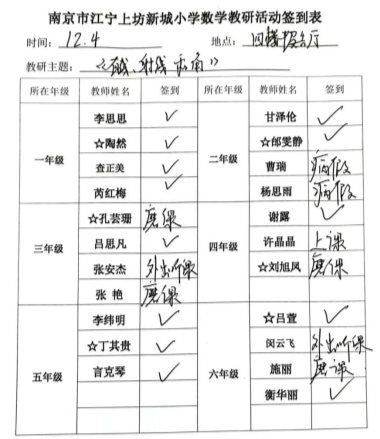 南京市江宁上坊新城小学数学教研活动签到表
时间： 12.4 地点： 四楼报告厅
教研主题： 《线、射线和角》
所在年级 教师姓名 签到 所在年级 教师姓名 签到
一年级 二年级
李思思 ✓ 甘泽伦 ✓
☆陶然 ✓ ☆邰雯静 ✓
查正美 ✓ 曹瑞 病假
芮红梅 ✓ 杨思雨 病假
三年级 四年级
☆孔芸珊 磨课 谢露 ✓
吕思凡 ✓ 许晶晶 上课
张安杰 外出听课 ☆刘旭凤 磨课
张艳 磨课
五年级 六年级
李纬明 ✓ ☆吕萱 ✓
☆丁其贵 ✓ 闵云飞 外出听课
言克琴 ✓ 施丽 磨课
衡华丽 ✓